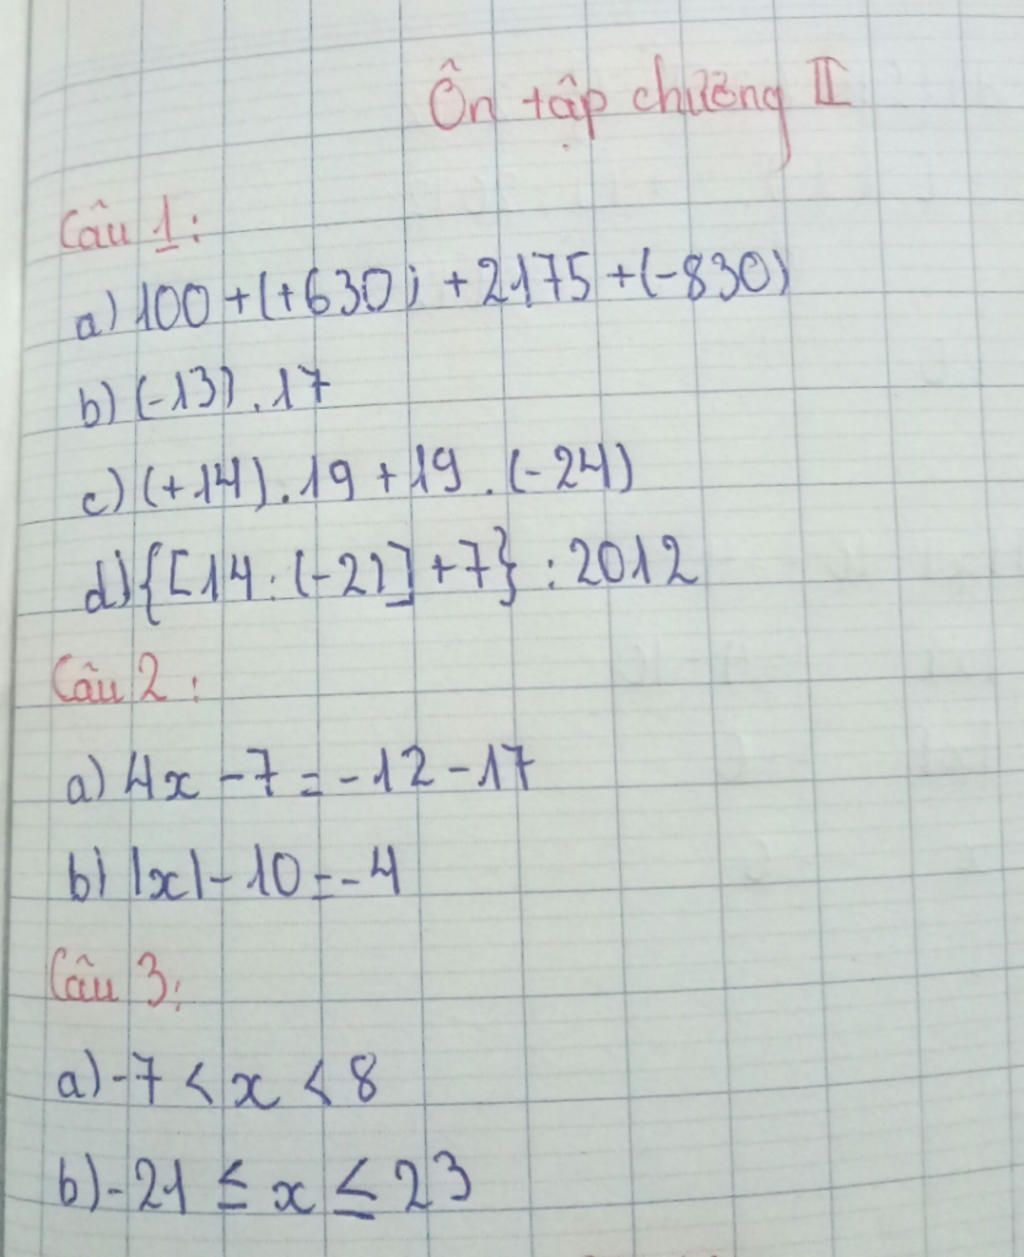 Ôn tập chương II
Câu 1:
a) 100 + (+630) + 2175 + (-830)
b) (-13) . 17
c) (+14) . 19 + 19 . (-24)
d) {[14 : (-2)] + 7} : 2012
Câu 2:
a) 4x - 7 = -12 - 17
b) |x| - 10 = -4
Câu 3:
a) -7 < x < 8
b) -21 ≤ x ≤ 23